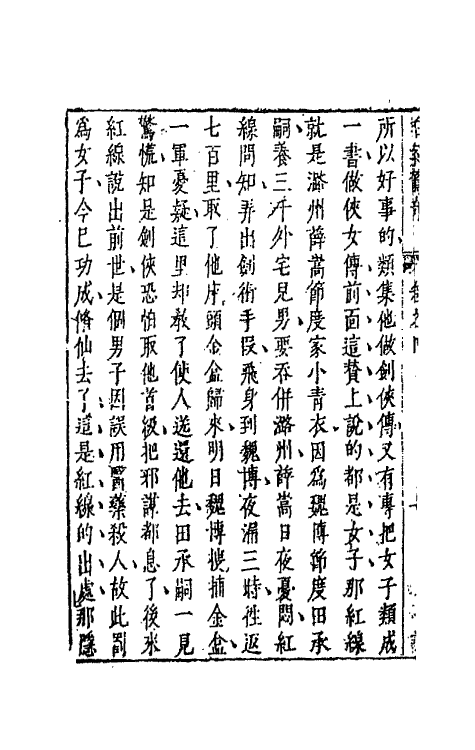 所以好事的類集他做劍俠傳又有專把女子類成
一書做俠女傳前面這贊上說的都是女子那紅線
就是潞州薛嵩節度家小青衣因爲魏博節度田承
嗣養三千外宅兒男要吞併潞州薛嵩日夜憂悶紅
線問知弄出劍術手段飛身到魏博夜漏三時徃返
七百里取了他床頭金盒歸來明日魏博搜捕金盒
一軍憂疑這里却教了使人送還他去田承嗣一見
驚慌知是劍俠恐怕取他首級把邪謀都息了後來
紅線說出前世是個男子因誤用醫藥殺人故此罰
爲女子今已功成修仙去了這是紅線的出處那隱